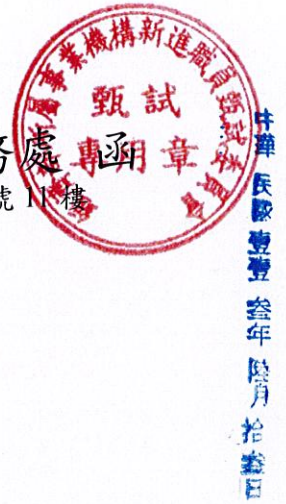 屬事業機構新進職員甄試委員會
甄試
專用章
處 函
號 11 樓
中華民國壹壹叁年陸月拾叁日